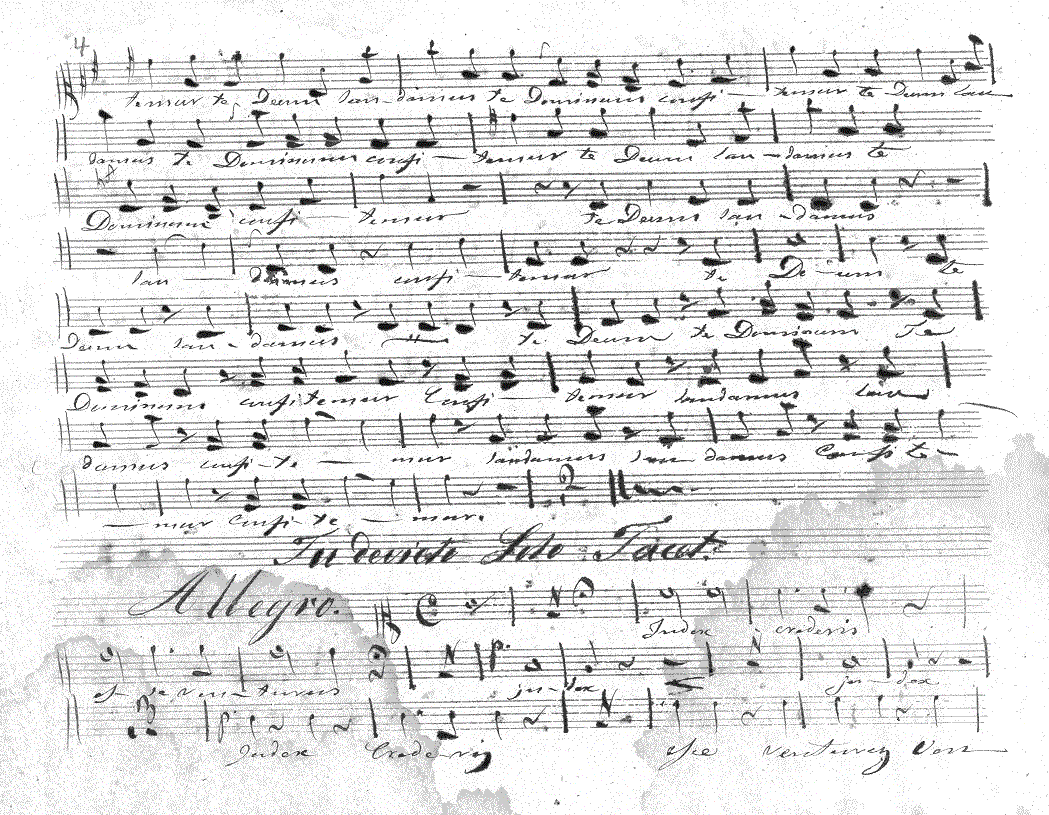 4
temur te Deum lau-damus te Dominum confi - temur te Deum lau
damus te Dominum confi - temur te Deum lau-damus te
Dominum confi - temur te Deum lau-damus
lau - damus confi - temur te De-um te
Deum lau-damus te Deum te Dominum Te
Dominum confitemur Confi - temur laudamus lau
damus confi-te - mur laudamus lau damus Confite-
- mur Confi-te - mur.
Tu devicte Solo Tacet.
Allegro. Judex crederis
ju-dex ju-dex
Judex Crederis venturus Ven